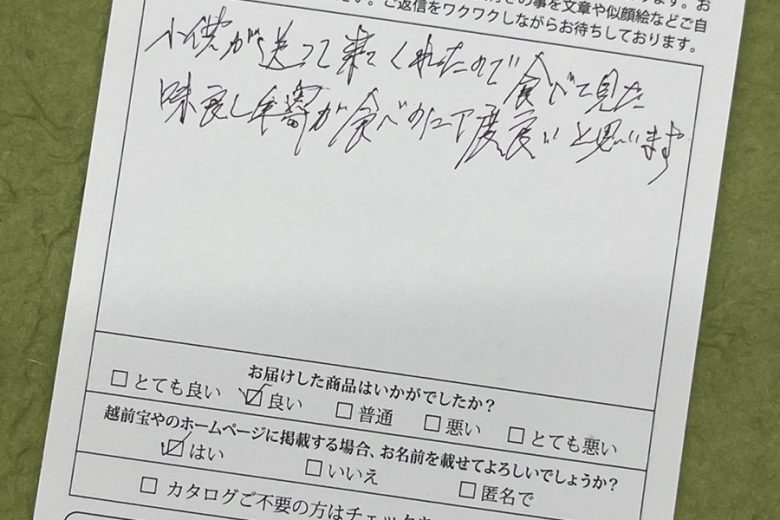 の事を文章や似顔絵などご自
さい。ご返信をワクワクしながらお待ちしております。
小供が送って来てくれたので食べて見た
味良し年寄が食べのに丁度良いと思います
お届けした商品はいかがでしたか?
□とても良い ☑良い □普通 □悪い □とても悪い
越前宝やのホームページに掲載する場合、お名前を載せてよろしいでしょうか?
☑はい □いいえ □匿名で
□ カタログご不要の方はチェックを